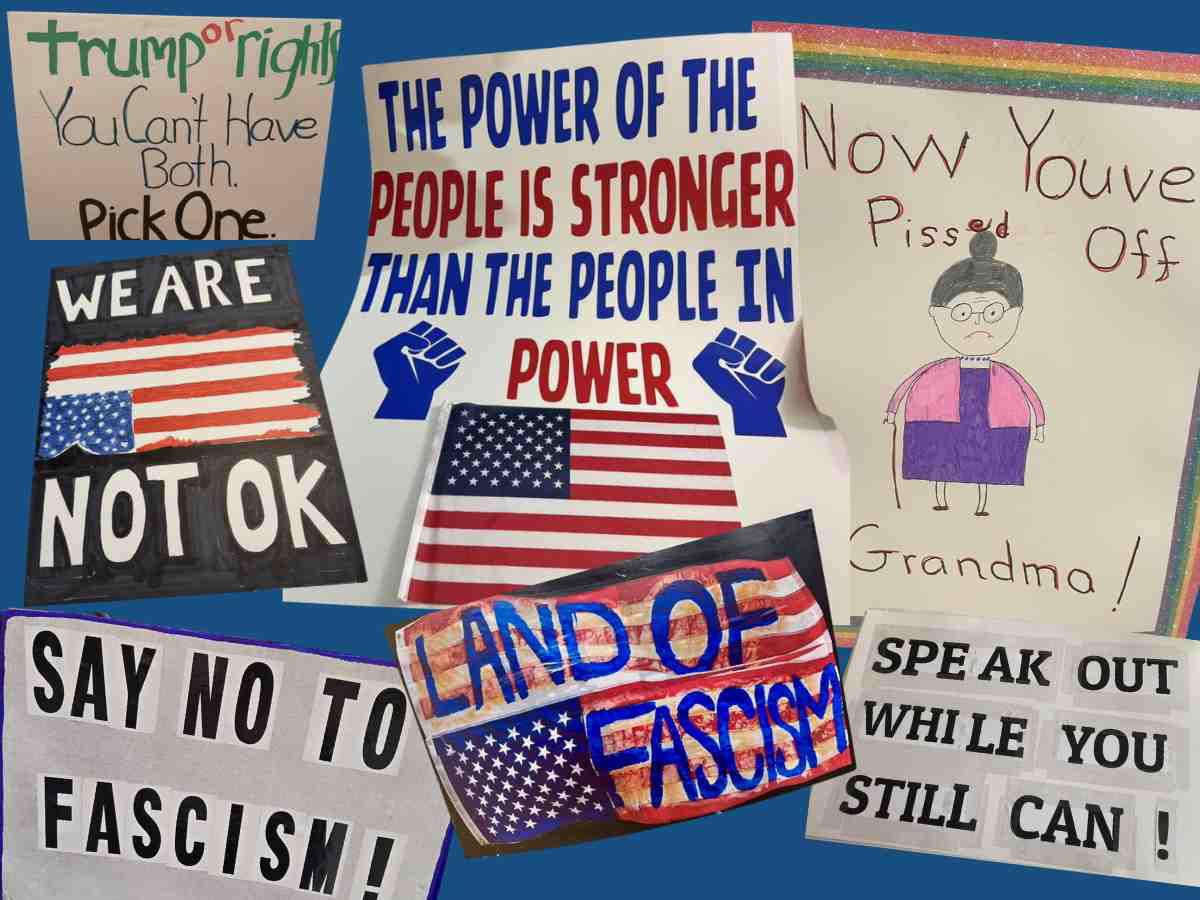 Trump or rights
You Can't Have
Both.
Pick One.
THE POWER OF THE
PEOPLE IS STRONGER
THAN THE PEOPLE IN
POWER
Now Youve
Pissed Off
Grandma!
WE ARE
NOT OK
LAND OF
FASCISM
SAY NO TO
FASCISM!
SPEAK OUT
WHILE YOU
STILL CAN!